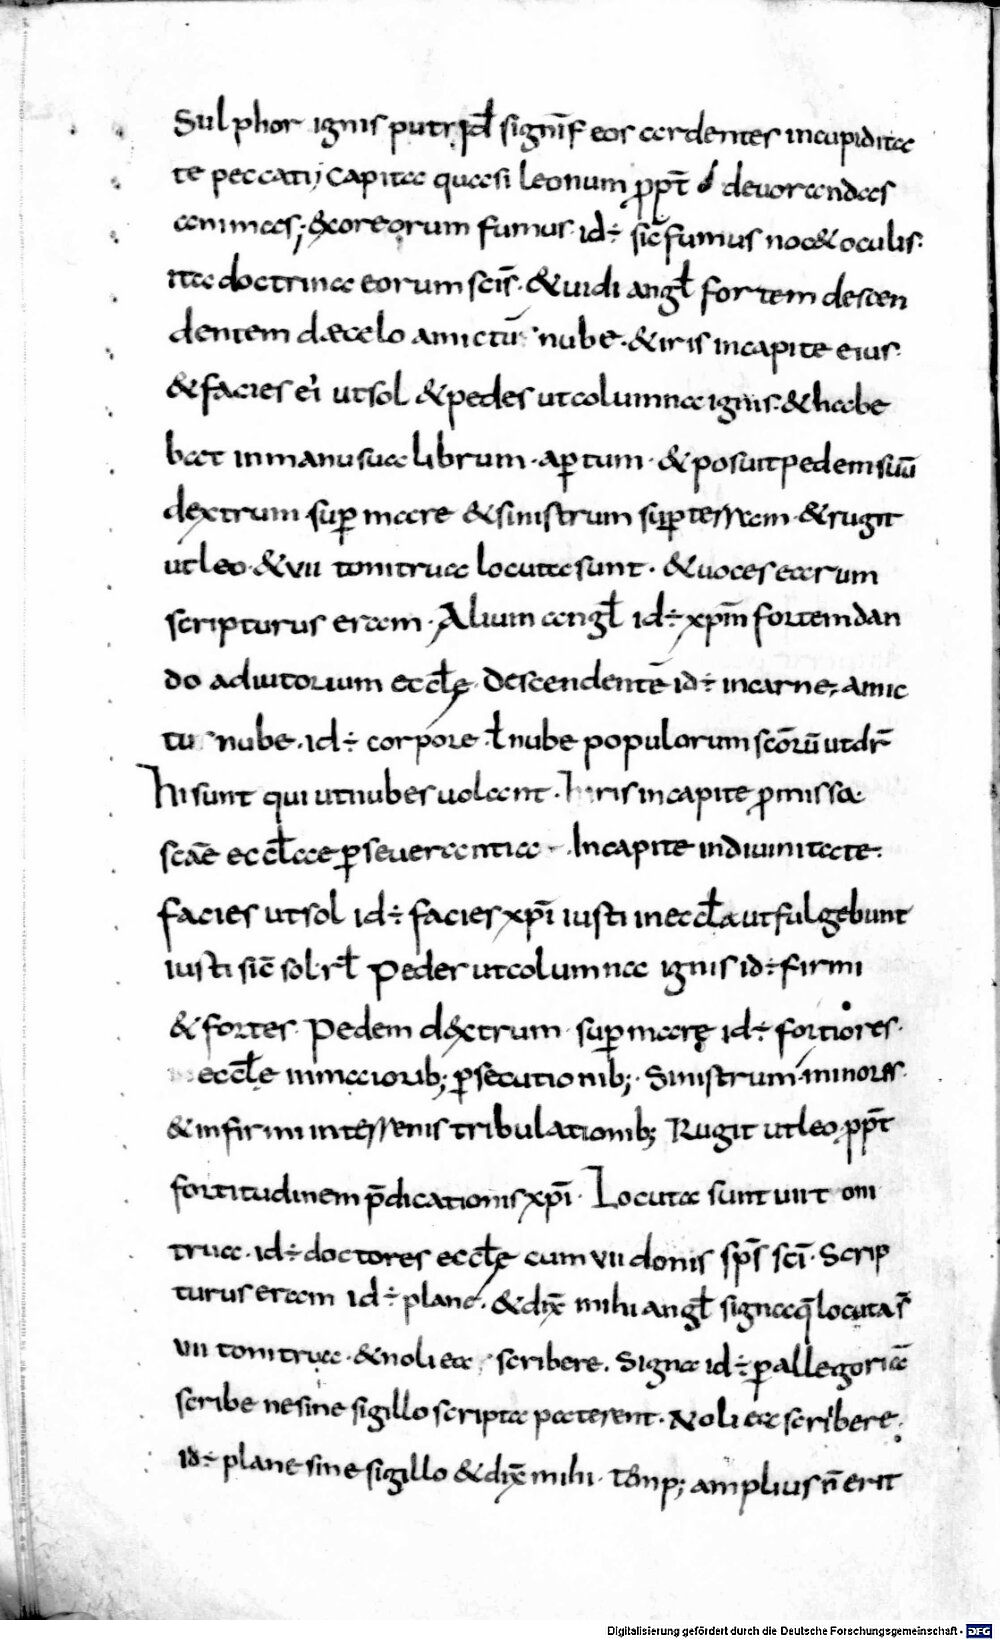 Sulphor ignis putrid̄ signif̄ eos ardentes incupidita
te peccati; capita quasi leonum ꝓpt̄ devorandas
animas; &coreorum fumus· id÷ sic̄ fumus noc& oculis·
ita doctrina eorum scīs· &uidi angł fortem descen
dentem dæcelo amictū nube·&iris incapite eius·
&facies ei' utsol &pedes utcolumna ignis·&habe
bat inmanu sua librum·aꝑtum·&posuit pedem suū
dextrum suꝑ mare &sinistrum suꝑ terram·&rugit
utleo·&vii tonitrua locuta sunt·&uoces earum
scripturus eram·Alium angł id÷ xp̄m fortem dan
do adiutorium eccłę·Descendentē id÷ incarne, amic
tu nube·id÷ corpore·ł nube populorum scōrū utdr̄
hi sunt qui utnubes uolant·hiris incapite ꝓmissa
scāe eccłae ꝑseuerantia·Incapite indiuinitate·
facies utsol id÷ facies xp̄i iusti ineccła utfulgebunt
iusti sic̄ sol·rł Peder utcolumna ignis id÷firmi
&fortes· Pedem d&xtrum· suꝑ marę id÷ fortiores·
eccłę inmaiorib; ꝑsecutionib;· Sinistrum·minores·
&infirmi interrenis tribulationib; Rugit utleo ꝓpt̄
fortitudinem p̄dicationis xp̄i· Locuta sunt uii t oni
trua·id÷doctores eccłę cum vii donis sp̄s sc̄i·Scrip
turus eram id÷plane·&dix̄ mihi angł signaq̄ locuta s̄
vii tonitrua·&noli ea scribere. Signa id÷ ꝑallegoriā
scribe nesine sigillo scripta pateant·Noli ea scribere·
id÷plane sine sigillo &dix̄ mihi·Temp; amplius n̄ erit
Digitalisierung gefördert durch die Deutsche Forschungsgemeinschaft - DFG